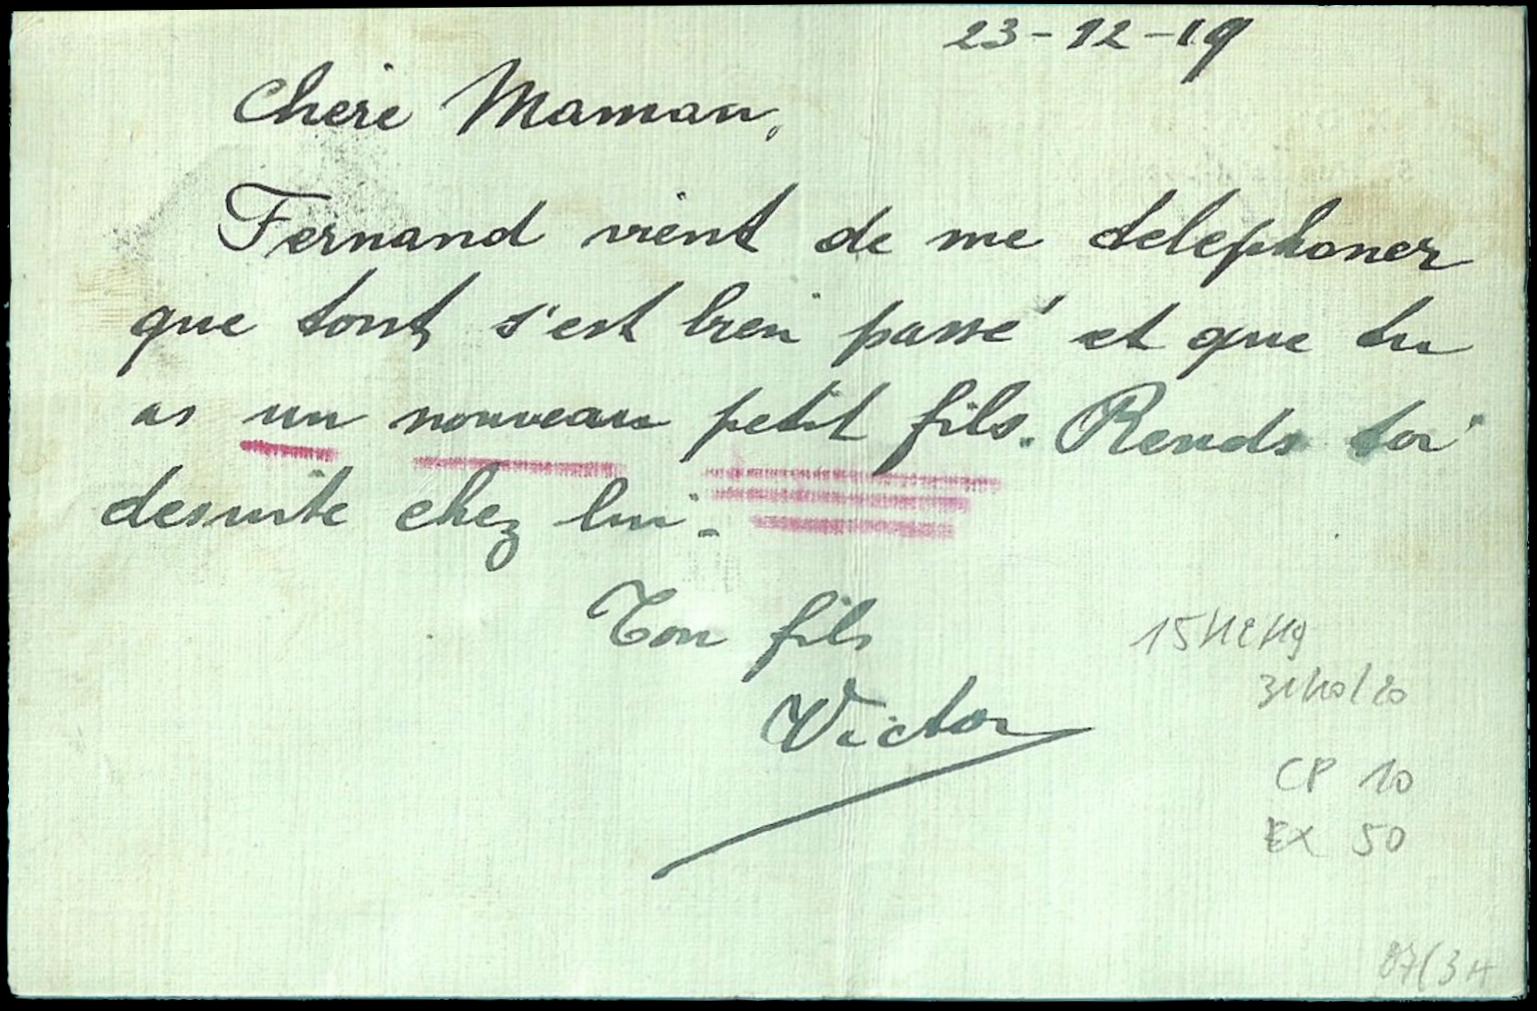 23-12-19
Chere Maman,
Fernand vient de me telephoner
que tout s'est bien passé et que tu
as un nouveau petit fils. Rends toi
desuite chez lui.
Ton fils
Victor
15/12/19
31/10/20
CP 10
EX 50